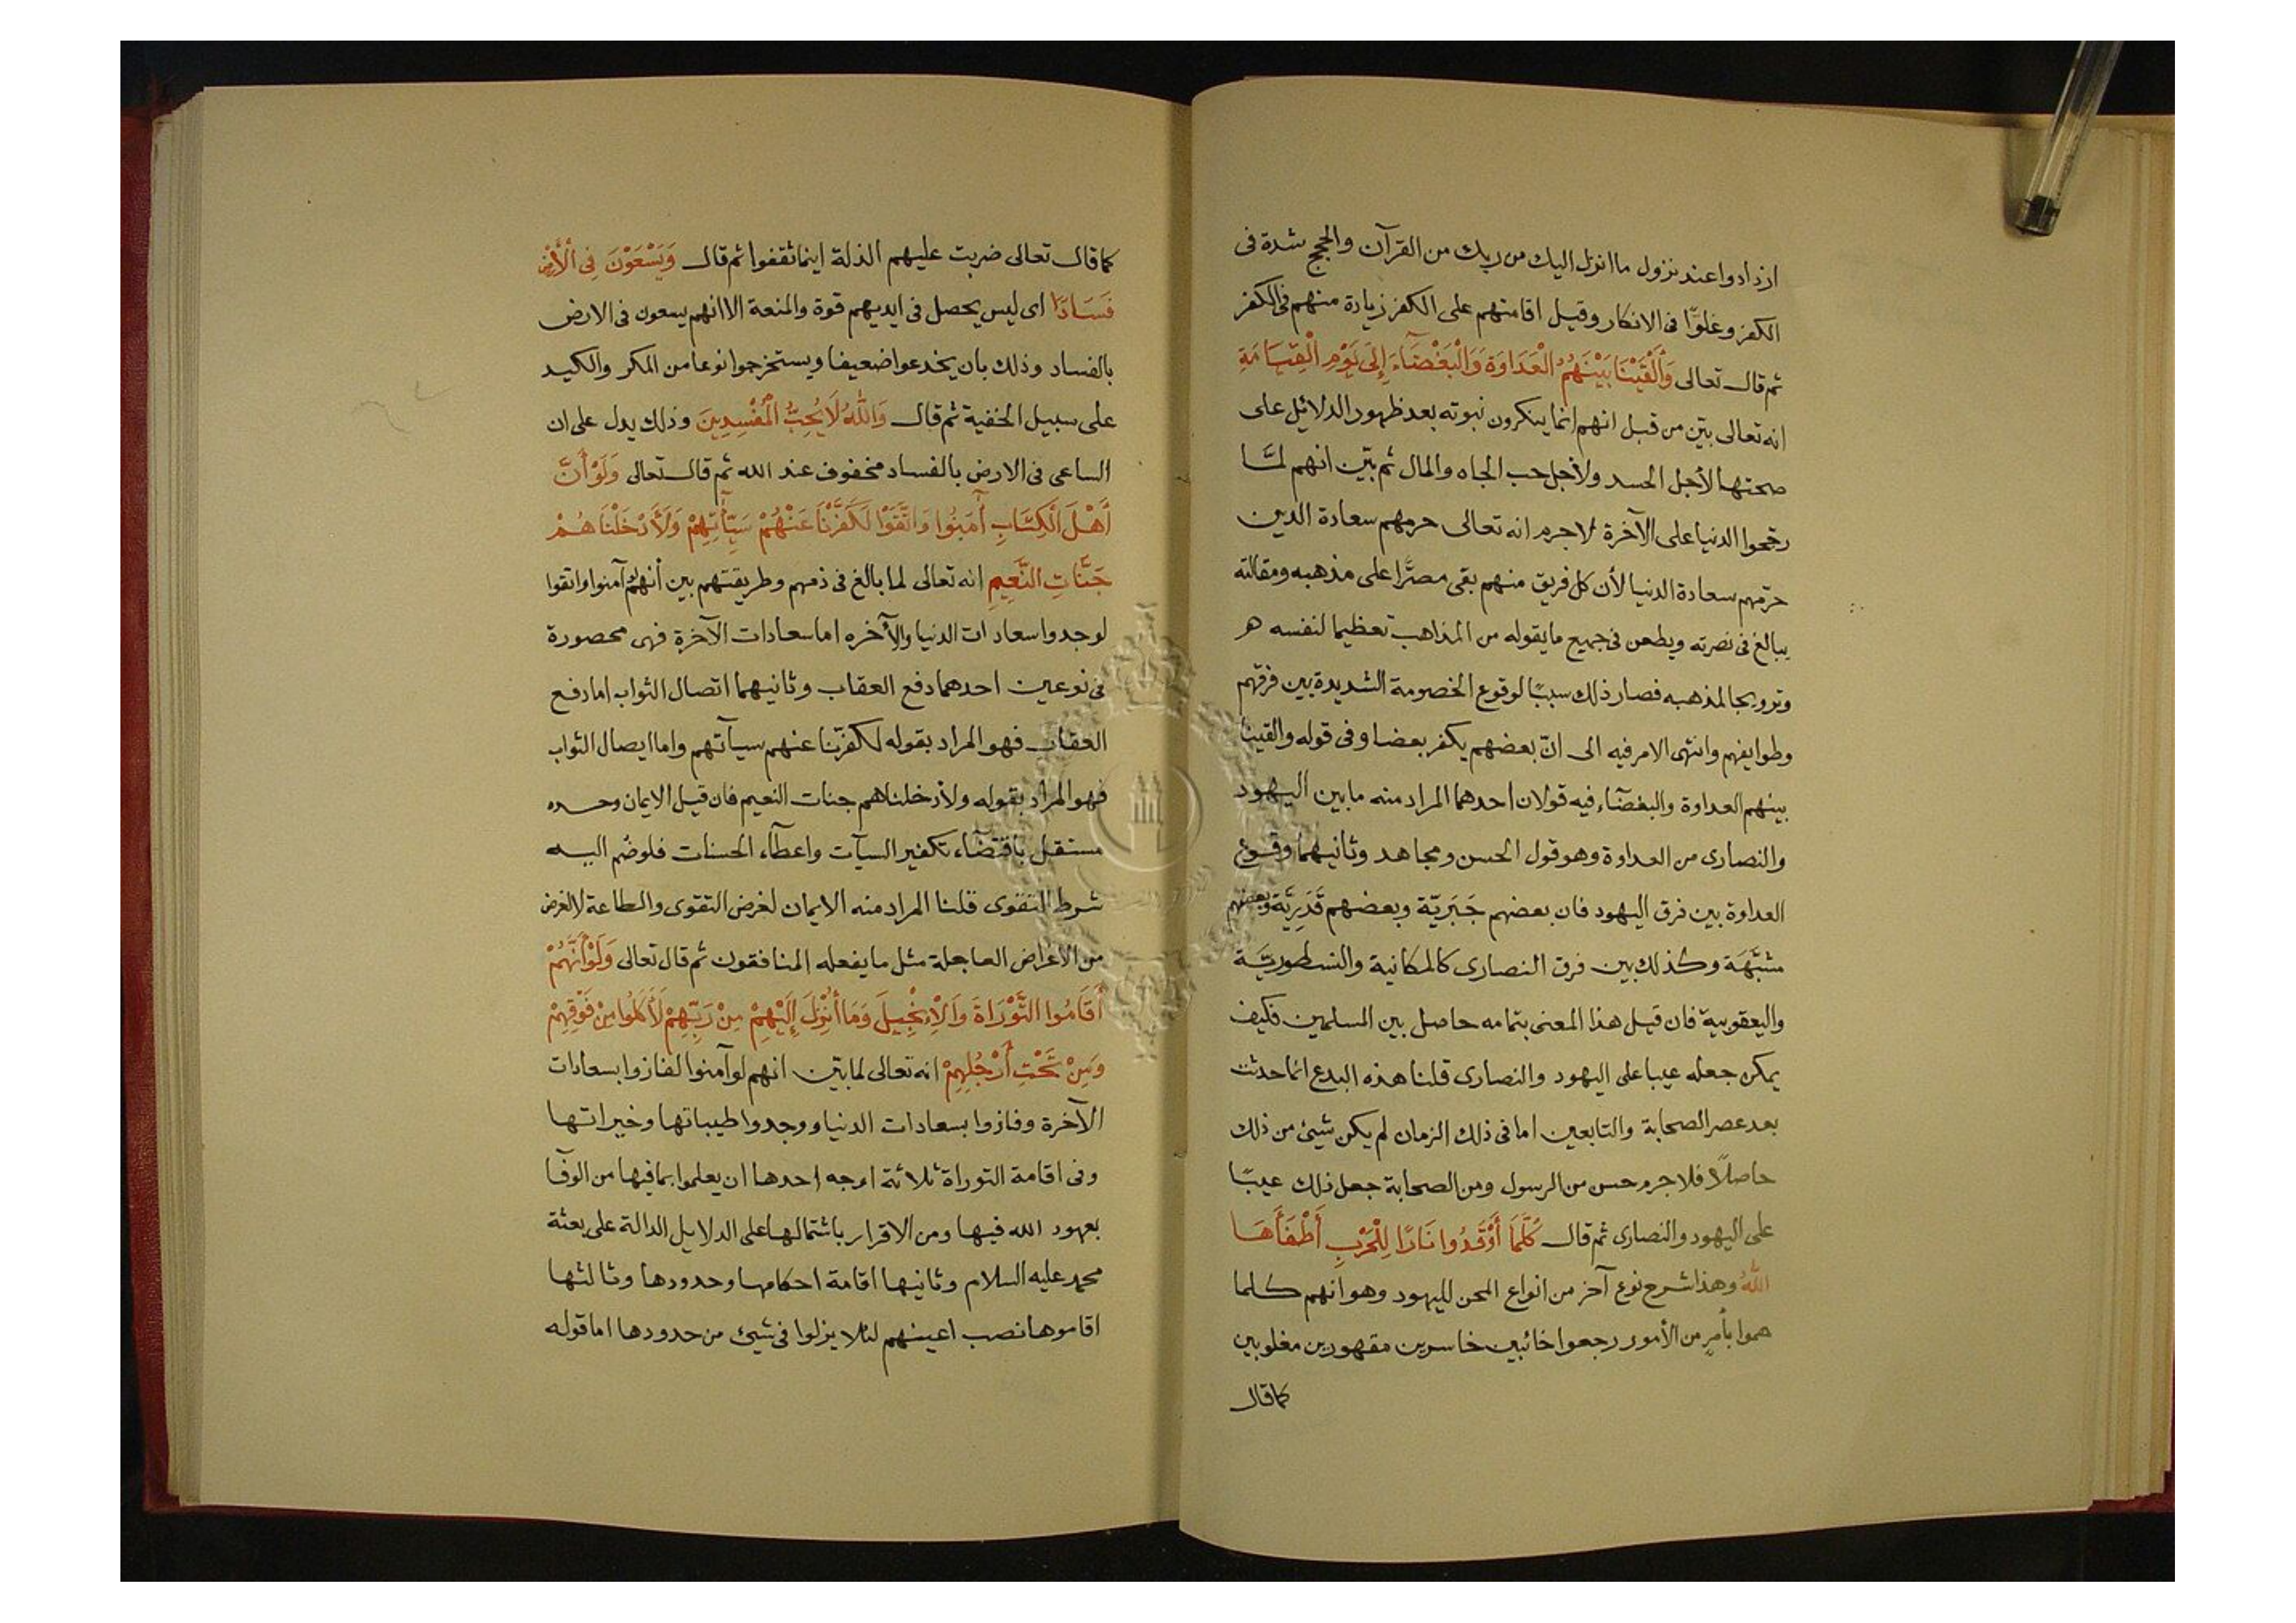 ازدادوا عند نزول ما انزل اليك من ربك من القرآن والحجج شدة فى
الكفر وغلوّا فى الانكار وقيل اقامتهم على الكفر زيادة منهم فى الكفر
ثم قال تعالى وَأَلْقَيْنَا بَيْنَهُمُ الْعَدَاوَةَ وَالْبَغْضَآءَ إِلَى يَوْمِ الْقِيَامَةِ
انه تعالى بيّن من قبل انهم انما ينكرون نبوته بعد ظهور الدلائل على
صحتها لأجل الحسد ولأجل حب الجاه والمال ثم بيّن انهم لمّا
رجّحوا الدنيا على الآخرة لا جرم انه تعالى حرمهم سعادة الدين
حرّمهم سعادة الدنيا لأن كل فريق منهم بقى مصرّا على مذهبه ومقالته
يبالغ فى نصرته ويطعن فى جميع ما يقوله من المذاهب تعظيما لنفسه
وترويجا لمذهبه فصار ذلك سببًا لوقوع الخصومة الشديدة بين فرقهم
وطوايفهم وانتهى الامر فيه الى انّ بعضهم يكفر بعضا وفى قوله والقينا
بينهم العداوة والبغضآء فيه قولان احدهما المراد منه ما بين اليهود
والنصارى من العداوة وهو قول الحسن ومجاهد وثانيهما وقوع
العداوة بين فرق اليهود فان بعضهم جَبَريّة وبعضهم قَدَرِيَّة وبعضهم
مشبّهَة وكذلك بين فرق النصارى كالمكانية والنسطوريّة
واليعقوبية فان قيل هذا المعنى بتمامه حاصل بين المسلمين فكيف
يمكن جعله عيبا على اليهود والنصارى قلنا هذه البدع انما حدثت
بعد عصر الصحابة والتابعين اما فى ذلك الزمان لم يكن شيئ من ذلك
حاصلًا فلا جرم حسن من الرسول ومن الصحابة جعل ذلك عيبًا
على اليهود والنصارى ثم قال كُلَّمَا أَوْقَدُوا نَارًا لِلْحَرْبِ أَطْفَأَهَا
اللّٰهُ وهذا شرح نوع آخر من انواع المحن لليهود وهو انهم كلما
هموا بأمرٍ من الأمور رجعوا خائبين خاسرين مقهورين مغلوبين
كما قال
كما قال تعالى ضربت عليهم الذلة اينما ثقفوا ثم قال وَيَسْعَوْنَ فِى الْأَرْضِ
فَسَادًا اى ليس يحصل فى ايديهم قوة والمنعة الا انهم يسعون فى الارض
بالفساد وذلك بان يخدعوا ضعيفا ويستخرجوا نوعا من المكر والكيد
على سبيل الخفية ثم قال وَاللّٰهُ لَا يُحِبُّ الْمُفْسِدِينَ وذلك يدل على ان
الساعى فى الارض بالفساد عند الله ثم قال تعالى وَلَوْ أَنَّ
أَهْلَ الْكِتَابِ آمَنُوا وَاتَّقَوْا لَكَفَّرْنَا عَنْهُمْ سَيِّآتِهِمْ وَلَأَدْخَلْنَاهُمْ
جَنَّاتِ النَّعِيمِ انه تعالى لما بالغ فى ذمهم وطريقتهم بين أنهم لو آمنوا واتقوا
لوجدوا سعادات الدنيا والآخره اما سعادات الآخرة فهى محصورة
فى نوعين احدهما دفع العقاب وثانيهما اتصال الثواب اما دفع
العقاب فهو المراد بقوله لكفّرنا عنهم سيآتهم واما ايصال الثواب
فهو المراد بقوله ولأدخلناهم جنات النعيم فان قيل الايمان وحده
مستقل باقتضآء تكفير السيآت واعطآء الحسنات فلو ضُم اليه
شرط التقوى قلنا المراد منه الايمان لغرض التقوى والطاعة لا لغرض
من الاغراض العاجلة مثل ما يفعله المنافقون ثم قال تعالى وَلَوْ أَنَّهُمْ
أَقَامُوا التَّوْرَاةَ وَالْإِنْجِيلَ وَمَا أُنْزِلَ إِلَيْهِمْ مِنْ رَبِّهِمْ لَأَكَلُوا مِنْ فَوْقِهِمْ
وَمِنْ تَحْتِ أَرْجُلِهِمْ انه تعالى لما بيّن انهم لو آمنوا لفازوا بسعادات
الآخرة وفازوا بسعادات الدنيا ووجدوا طيباتها وخيراتها
وفى اقامة التوراة ثلاثة اوجه احدها ان يعلموا بما فيها من الوفآ
بعهود الله فيها ومن الاقرار باشتمالها على الدلايل الدالة على بعثة
محمد عليه السلام وثانيها اقامة احكامها وحدودها وثالثها
اقاموها نصب اعينهم لئلا يزلوا فى شيئ من حدودها اما قوله